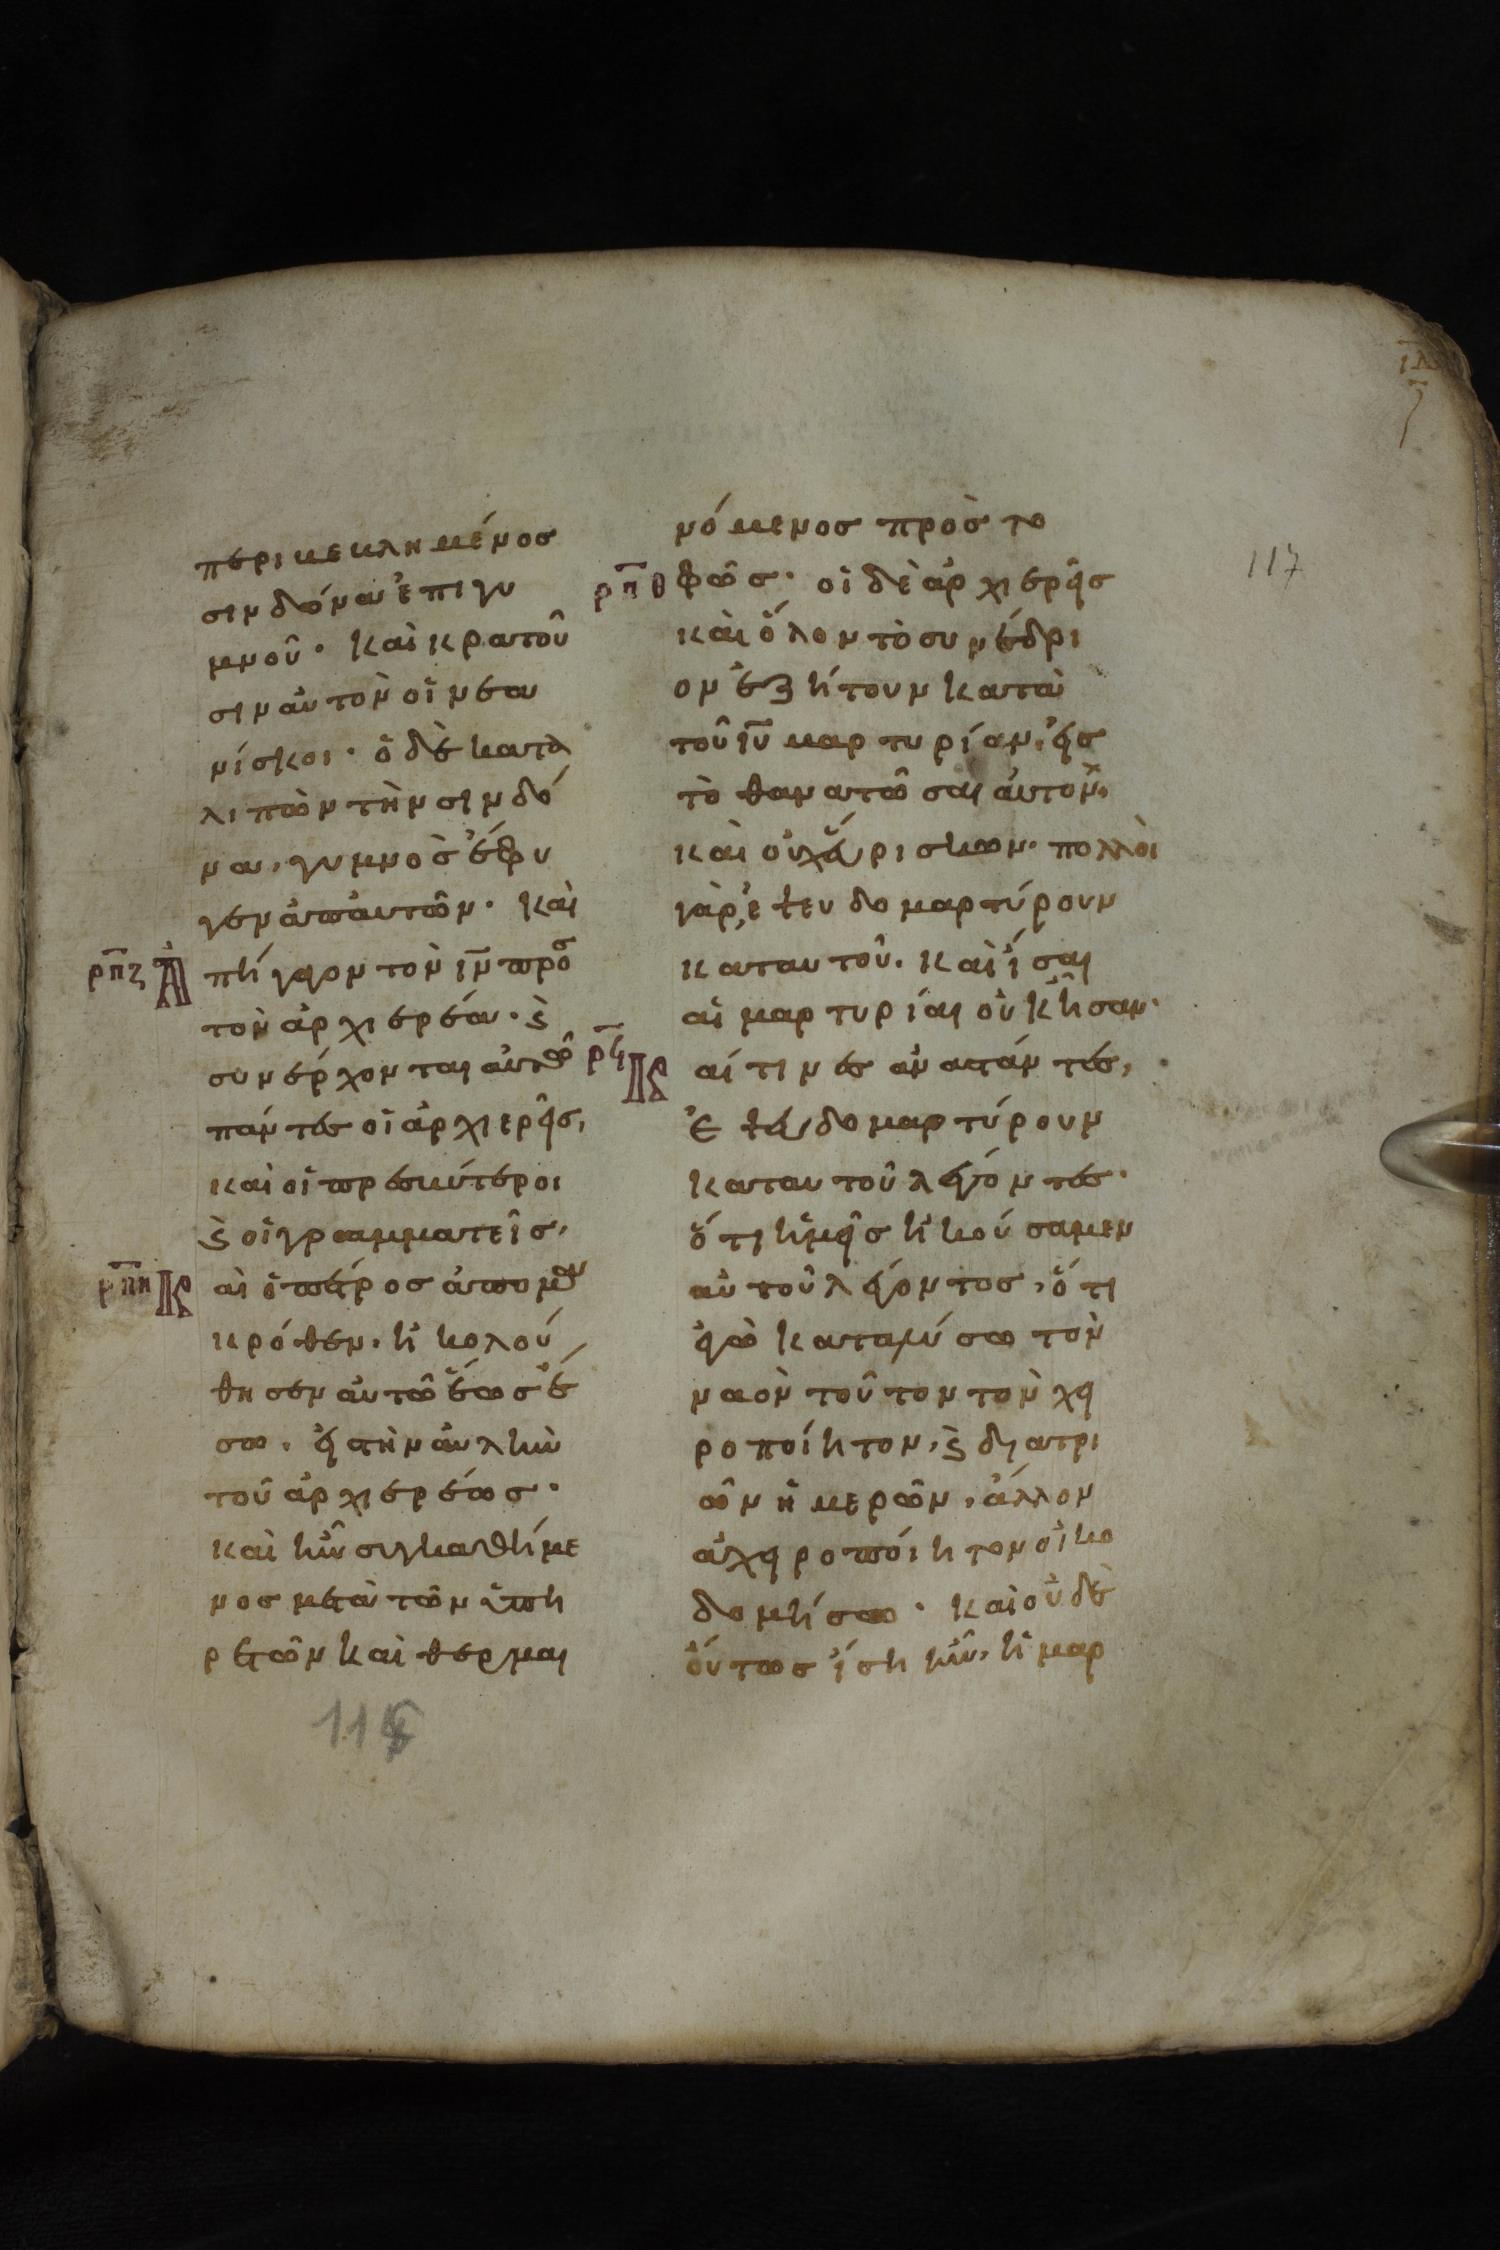 117
περικεκλημένος
σινδόνα ἐπὶ γυ
μνοῦ· καὶ κρατοῦ
σιν αὐτὸν οἱ νεα
νίσκοι· ὁ δὲ κατα
λιπὼν τὴν σινδό
να, γυμνὸς ἔφυ
γεν ἀπ' αὐτῶν· καὶ
ρπζ Ἀ
πήγαγον τὸν ιν πρὸς
τὸν ἀρχιερέα· ϗ
συνέρχονται αὐτῶ
πάντες οἱ ἀρχιερεῖς,
καὶ οἱ πρεσβύτεροι
ϗ οἱ γραμματεῖς,
ρπη Κ
αὶ ὁ πέτρος ἀπὸ μα
κρόθεν, ἠκολού
θησεν αὐτῶ ἕως ἔ
σω, εἰς τὴν αὐλὴν
τοῦ ἀρχιερέως·
καὶ ἦν συγκαθήμε
νος μετὰ τῶν ὑπη
ρετῶν καὶ θερμαι
νόμενος πρὸς το
ρπθ φῶς· οἱ δὲ ἀρχιερεῖς
καὶ ὅλον τὸ συνέδρι
ον ἐζήτουν κατὰ
τοῦ ιυ μαρτυρίαν, εἰς
τὸ θανατῶσαι αὐτόν·
καὶ οὐχ εὕρισκον· πολλοὶ
γὰρ, ἐψευδομαρτύρουν
κατ αυτοῦ. καὶ ἴσαι
αἱ μαρτυρίαι οὐκ ἦσαν·
ρϟ Κ
αί τινες ἀναστάντες,
ἐψευδομαρτύρουν
κατ αυτοῦ λέγοντες·
ὅτι ἡμεῖς ἠκούσαμεν
αὐτοῦ λέγοντος, ὅτι
ἐγὼ καταλύσω τὸν
ναὸν τοῦτον τὸν χει
ροποίητον, ϗ διὰ τρι
ῶν ἡμερῶν, ἄλλον
ἀχειροποίητον οἰκο
δομήσω· καὶ οὐδὲ
οὕτως ἴση ἦν, ἡ μαρ